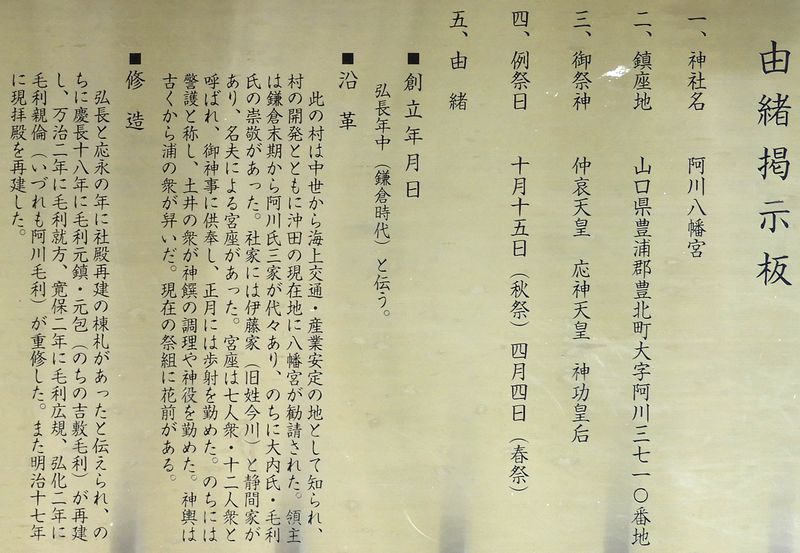 由緒掲示板
一、神社名　阿川八幡宮
二、鎮座地　山口県豊浦郡豊北町大字阿川三七一〇番地
三、御祭神　仲哀天皇　応神天皇　神功皇后
四、例祭日　十月十五日（秋祭）四月四日（春祭）
五、由緒
■創立年月日
弘長年中（鎌倉時代）と伝う。
■沿革
此の村は中世から海上交通・産業安定の地として知られ、
村の開発とともに沖田の現在地に八幡宮が勧請された。領主
は鎌倉末期から阿川氏三家が代々あり、のちに大内氏・毛利
氏の崇敬があった。社家には伊藤家（旧姓今川）と静間家が
あり、名夫による宮座があった。宮座は七人衆・十二人衆と
呼ばれ、御神事に供奉し、正月には歩射を勤めた。のちには
警護と称し、土井の衆が神饌の調理や神役を勤めた。神輿は
古くから浦の衆が舁いだ。現在の祭組に花前がある。
■修造
弘長と応永の年に社殿再建の棟札があったと伝えられ、の
ちに慶長十八年に毛利元鎮・元包（のちの吉敷毛利）が再建
し、万治二年に毛利就方、寛保二年に毛利広規、弘化二年に
毛利親倫（いづれも阿川毛利）が重修した。また明治十七年
に現拝殿を再建した。